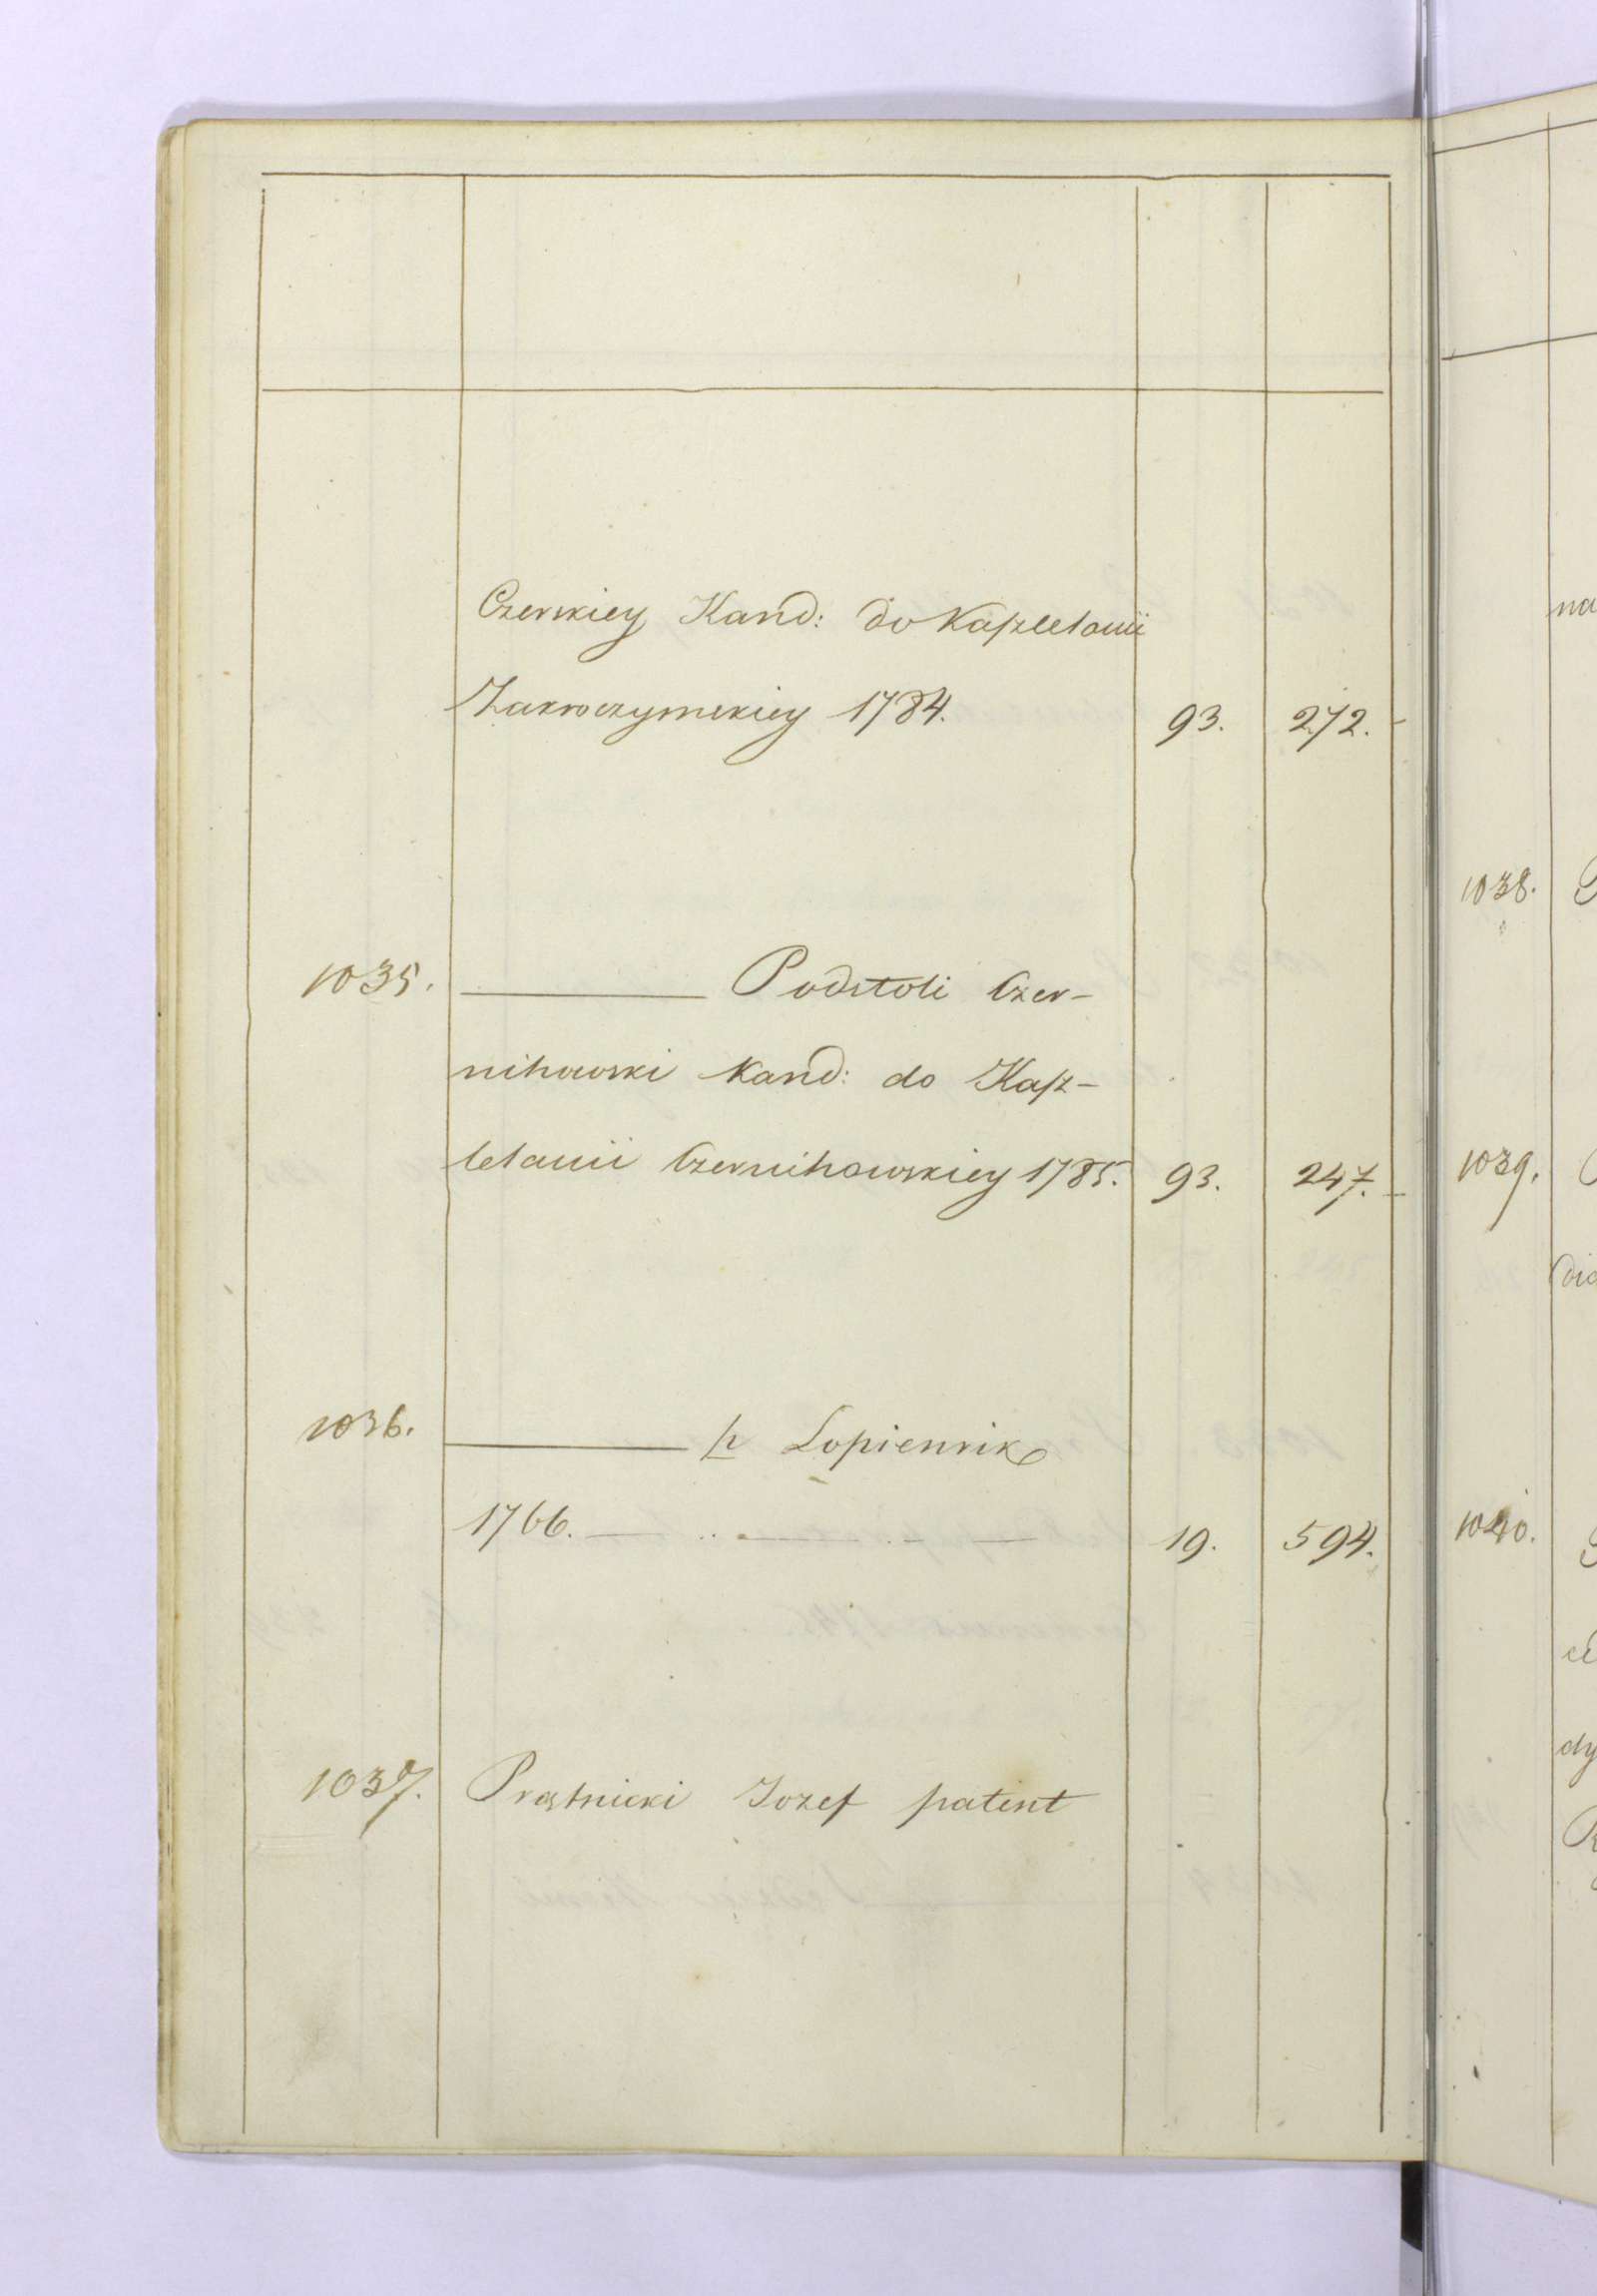 Czerskiey Kand: do Kasztelanii
Zakroczymskiey 1784. 93. 272.
1035. ——— Podstoli Czer-
nihowski Kand: do Kasz-
telanii Czernihowskiey 1785. 93. 247.
1036. ——— h Lopiennik
1766. 19. 594.
1037. Prątnicki Jozef patent
na
1038.
1039.
1040.
dy